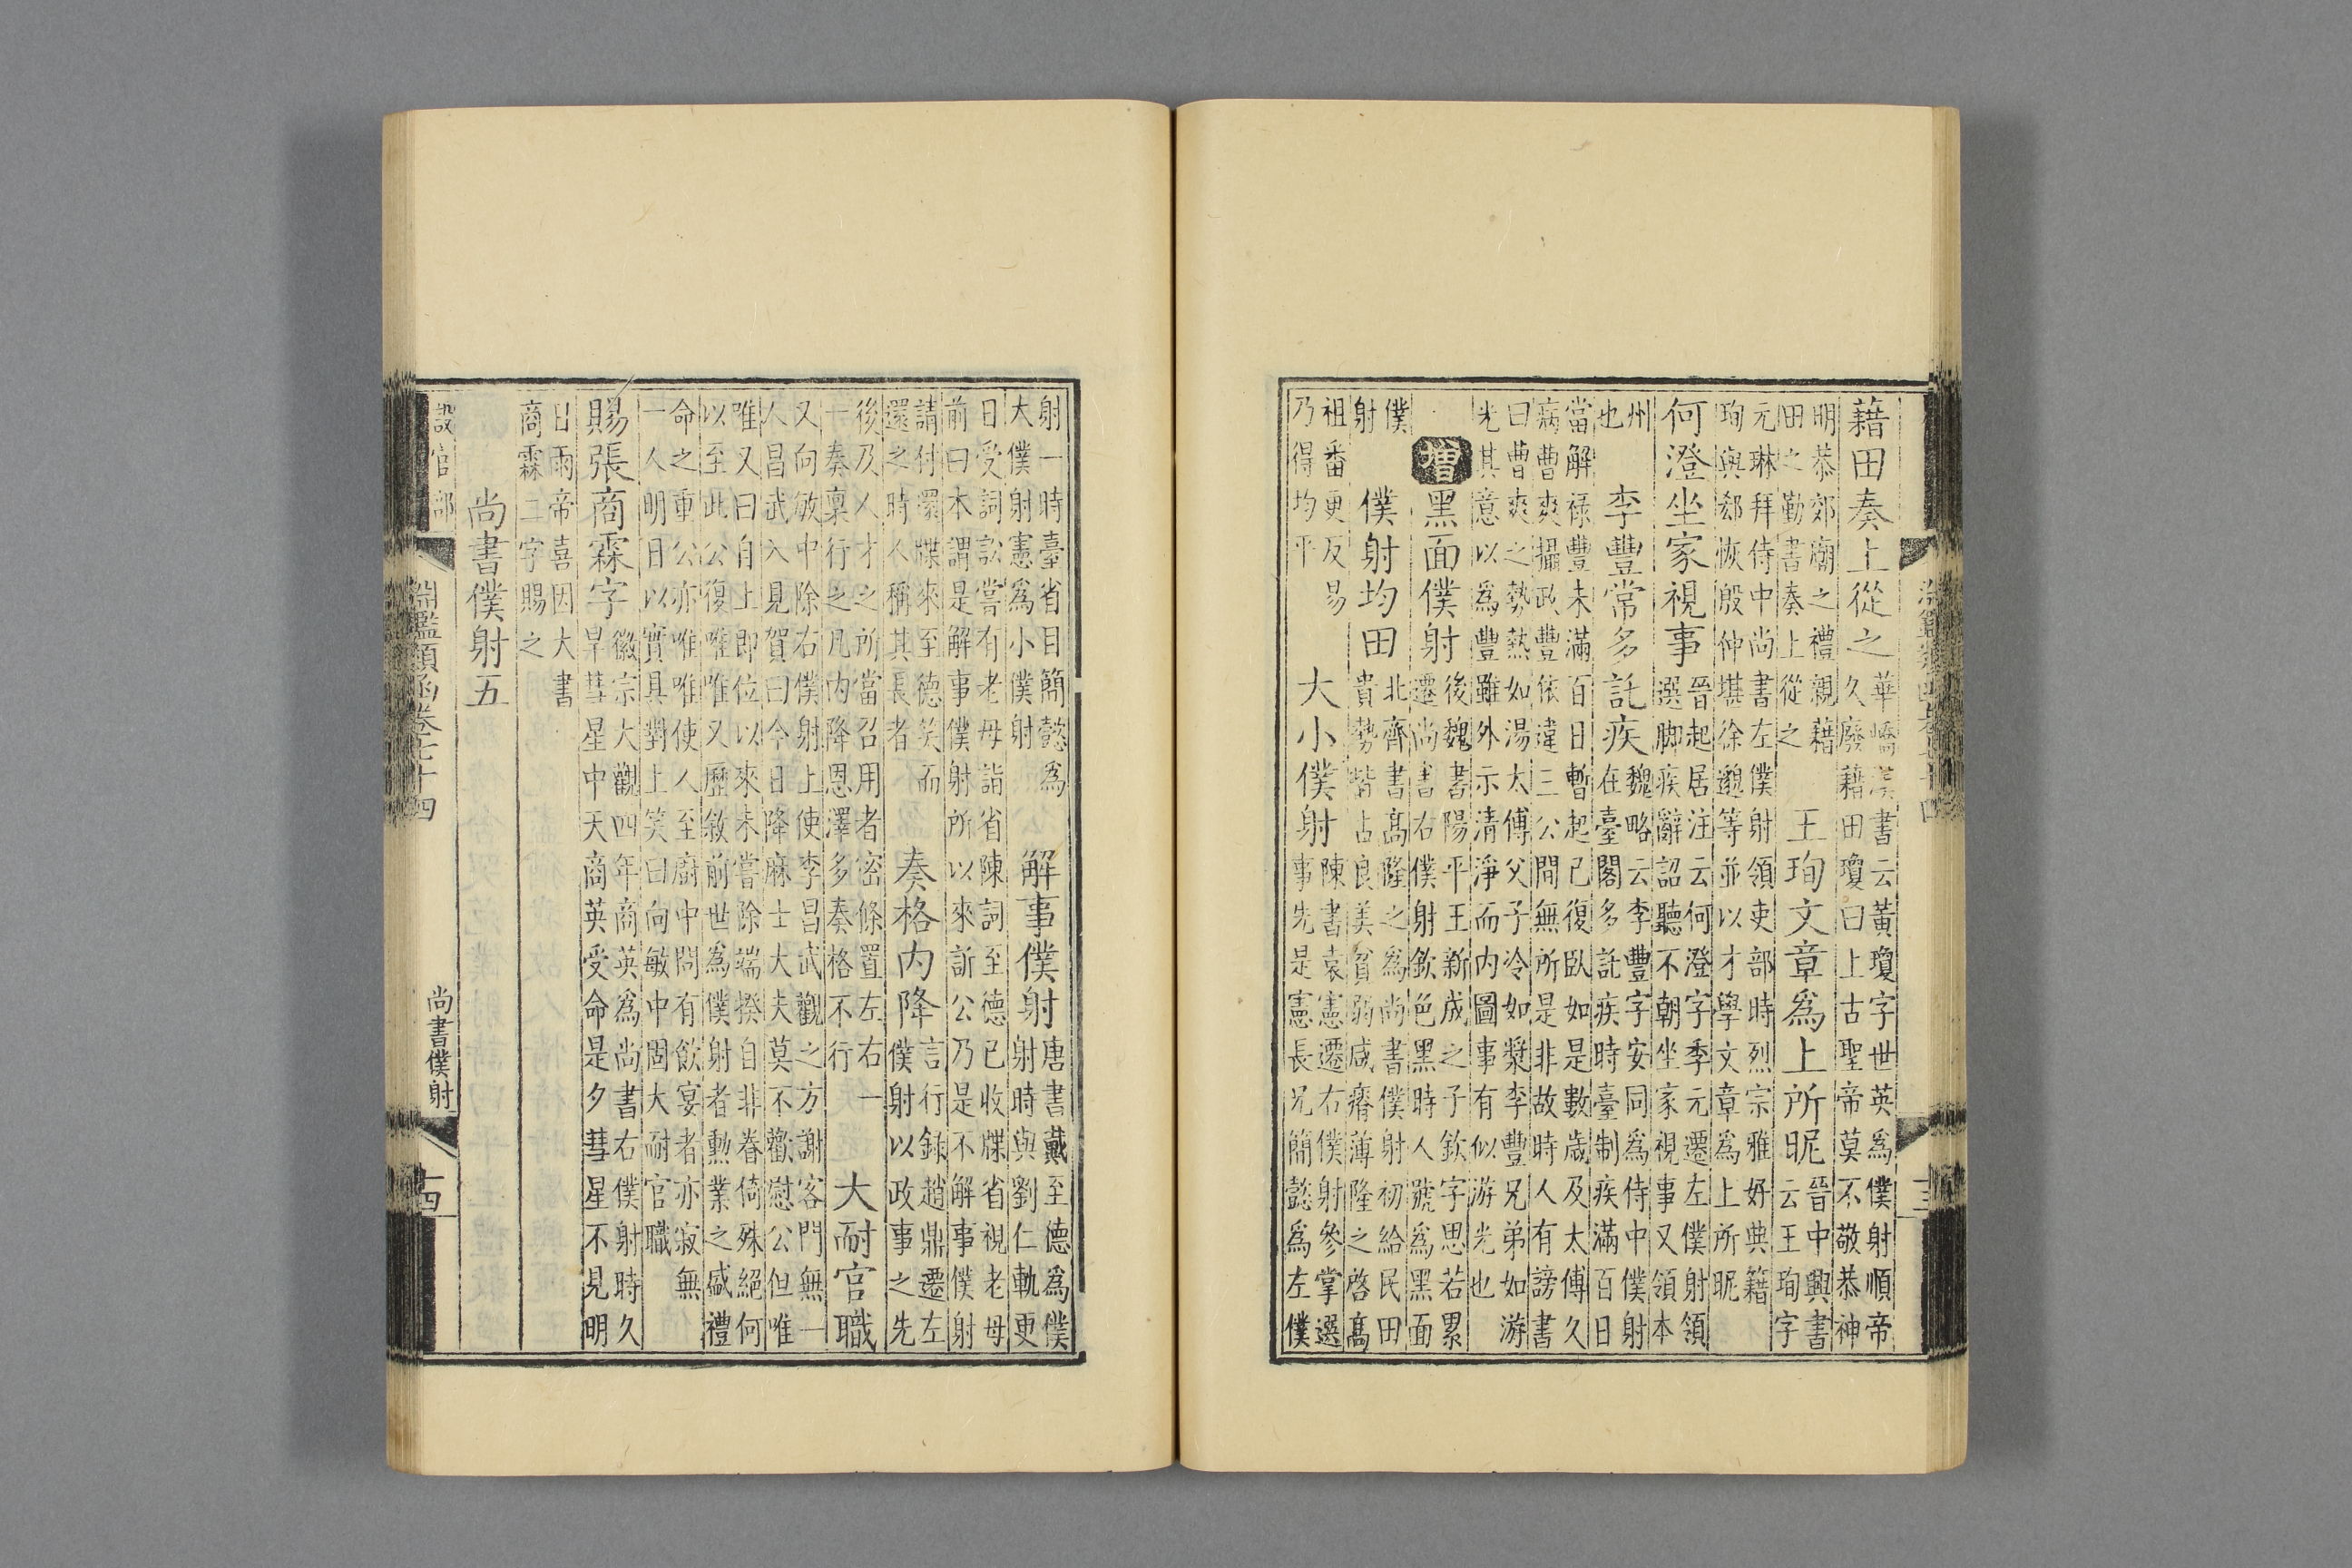 藉田奏上從之
華嶠漢書云黃瓊字世英爲僕射順帝
久廢藉田瓊曰上古聖帝莫不敬恭神
明恭郊廟之禮親藉
田之勤書奏上從之
王珣文章爲上所昵
晉中興書
云王珣字
元琳拜侍中尚書左僕射領吏部時烈宗雅好典籍
珣與郄恢殷仲堪徐邈等並以才學文章爲上所昵
何澄坐家視事
晉起居注云何澄字季元遷左僕射領
選脚疾辭詔聽不朝坐家視事又領本
州
也
李豐常多託疾
魏略云李豐字安同爲侍中僕射
在臺閣多託疾時臺制疾滿百日
當解祿豐未滿百日暫起已復臥如是數歲及太傅久
病曹爽攝政豐依違三公間無所是非故時人有謗書
曰曹爽之勢熱如湯太傅父子冷如漿李豐兄弟如游
光其意以爲豐雖外示清淨而内圖事有似游光也
增黑面僕射
後魏書陽平王新成之子欽字思若累
遷尚書右僕射欽色黑時人號爲黑面
僕
射
僕射均田
北齊書髙隆之爲尚書僕射初給民田
貴勢皆占良美貧弱咸瘠薄隆之啓髙
祖番更反易
乃得均平
大小僕射
陳書袁憲遷右僕射參掌選
事先是憲長兄簡懿爲左僕
射一時臺省目簡懿爲
大僕射憲爲小僕射
解事僕射
唐書戴至德爲僕
射時與劉仁軌更
日受詞訟嘗有老母詣省陳詞至德已收牒省視老母
前曰本謂是解事僕射所以來訴公乃是不解事僕射
請付還牒來至德笑而
還之時人稱其長者
奏格内降
言行錄趙鼎遷左
僕射以政事之先
後及人才之所當召用者密條置左右一
一奏稟行之凡内降恩澤多奏格不行
大耐官職
又向敏中除右僕射上使李昌武觀之方謝客門無一
人昌武入見賀曰今日降麻士大夫莫不歡慰公但唯
唯又曰自上即位以來未嘗除端揆自非眷倚殊絕何
以至此公復唯唯又歷敘前世爲僕射者勲業之盛禮
命之重公亦唯唯使人至廚中問有飲宴者亦寂無
一人明日以實具對上笑曰向敏中固大耐官職
賜張商霖字
徽宗大觀四年商英爲尚書右僕射時久
旱彗星中天商英受命是夕彗星不見明
日雨帝喜因大書
商霖二字賜之
尚書僕射五
設官部
淵鑑類函卷七十四
尚書僕射
十四